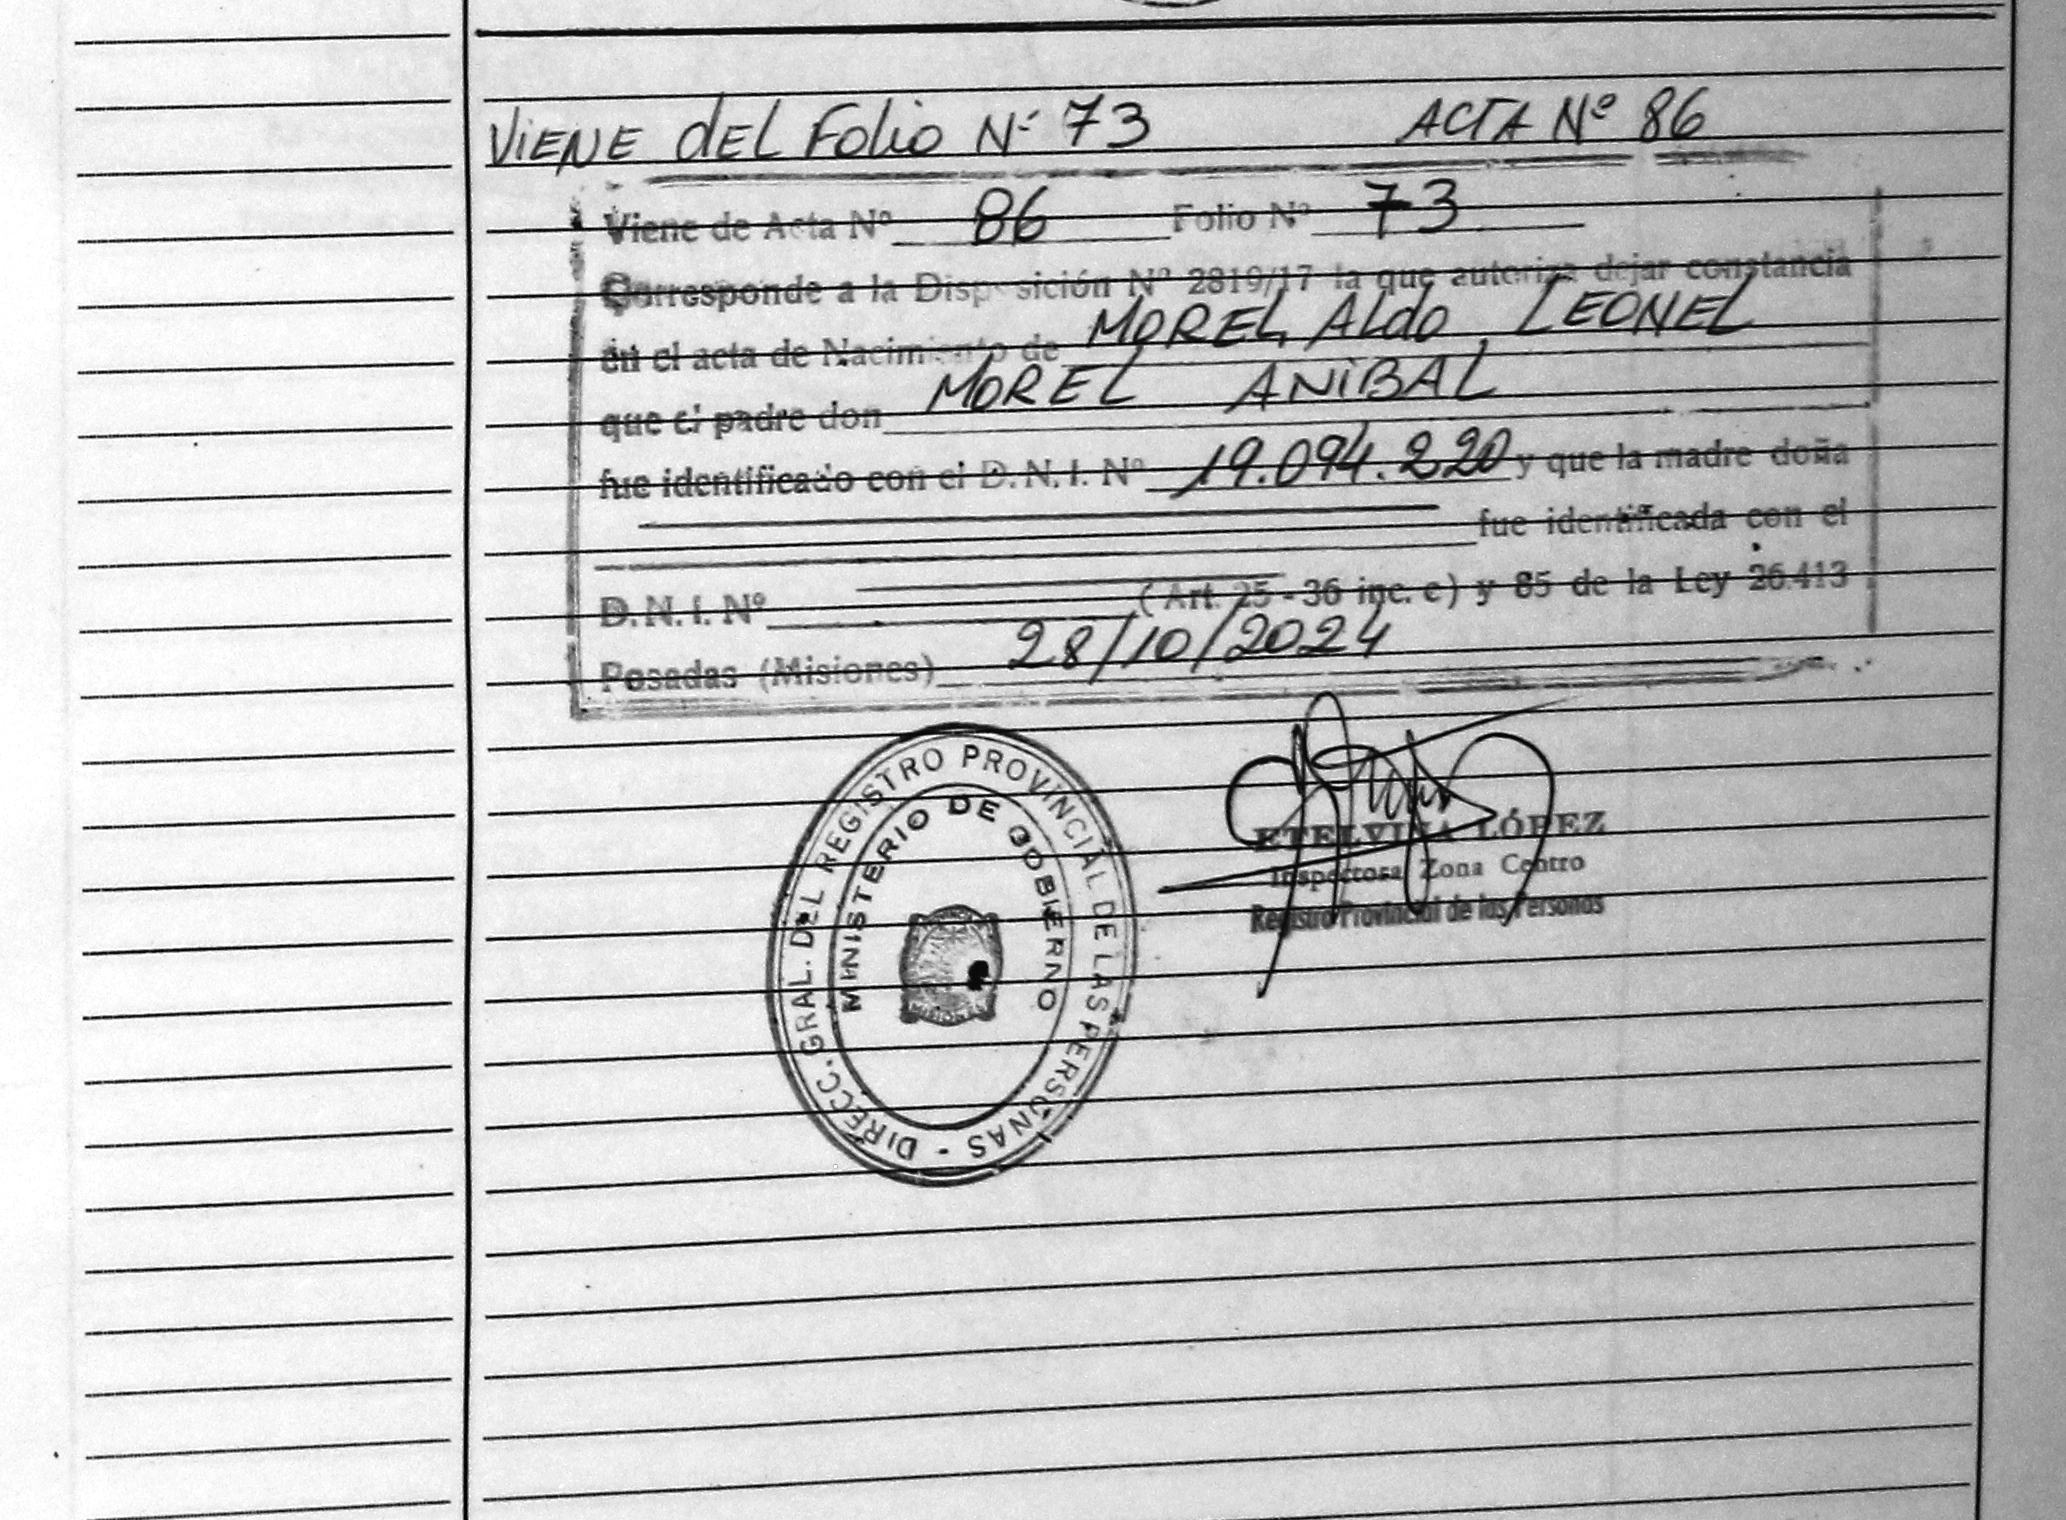 VIENE DEL FOLIO Nº 73 ACTA Nº 86
Viene de Acta Nº 86 Folio Nº 73
Corresponde a la Disposición Nº 2819/17 la que autoriza dejar constancia
en el acta de Nacimiento de MOREL ALDO LEONEL
que el padre don MOREL ANIBAL
fue identificado con el D.N.I. Nº 19.094.220 y que la madre doña
fue identificada con el
D.N.I. Nº (Art. 25 - 36 inc. c) y 85 de la Ley 26.413
Posadas (Misiones) 28/10/2024
DIRECC. GRAL. DEL REGISTRO PROVINCIAL DE LAS PERSONAS -
MINISTERIO DE GOBIERNO
ETELVINA LÓPEZ
Inspectora Zona Centro
Registro Provincial de las Personas